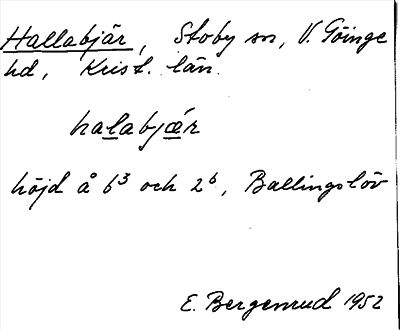 Hallabjär, Stoby sn, V. Göinge
hd, Krist. län.
halabjær
höjd å 6³ och 2⁶, Ballingslöv
E. Bergenrud 1952